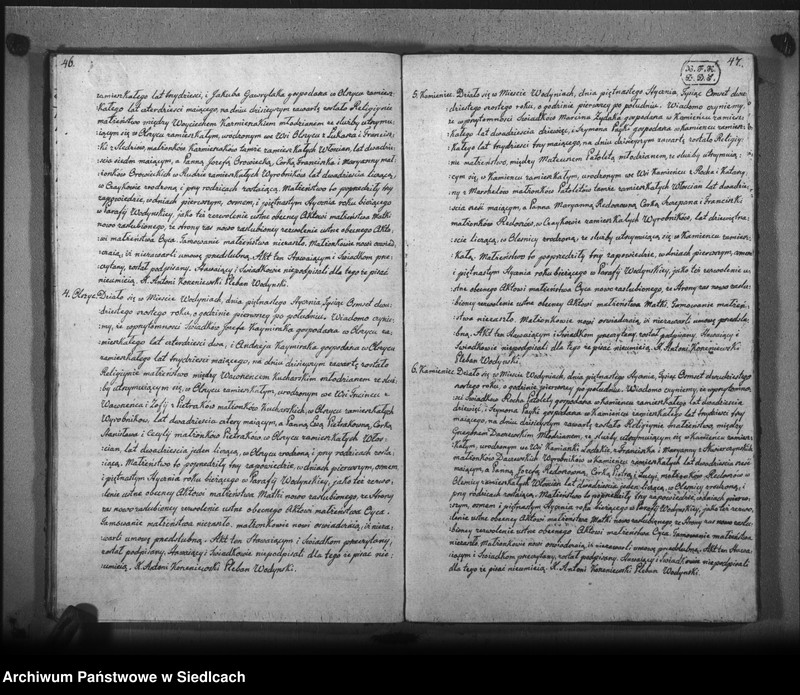 46.
zamieszkałego lat trzydzieści, i Jakuba Gawrylaka gospodarza w Olszycu zamiesz
kałego lat czterdzieści mającego, na dniu dzisiejszym zawarte zostało Religijnie
małżeństwo między Woyciechem Karmieniakiem młodzianem ze służby utrzymu
jącym się w Olszycu zamieszkałym, urodzonym we Wsi Olszycu z Łukasza i Francisz
ki z Sledziów, małżonków Karmieniaków tamże zamieszkałych Włościan, lat dwadzie
ścia siedm mającym, a Panną Józefą Orowiecką, Córką Franciszka i Maryanny mał
żonków Orowieckich w Rudzie zamieszkałych Wyrobników lat dwadzieścia liczącą,
w Czaykowie urodzoną i przy rodzicach zostającą. Małżeństwo to poprzedziły trzy
zapowiedzie, w dniach pierwszym, osmem, i piętnastym Stycznia roku bieżącego w
Parafij Wodyńskiey, jako też zezwolenie ustne obecney Aktowi małżeństwa Matki
nowo zaślubionego, ze strony zaś nowo zaślubioney zezwolenie ustne obecnego Akto
wi małżeństwa Oyca. Tamowanie małżeństwa niezaszło. Małżonkowie nowi oświad
czają, iż niezawarli umowy przedślubney. Akt ten stawaiącym i Świadkom prze
czytany, został podpisany. Stawaiący i Świadkowie niepodpisali dla tego że pisać
nieumieią. X. Antoni Korzeniewski Pleban Wodyński.
4. Olszyc. Działo się w Mieście Wodyniach, dnia piętnastego Stycznia, Tysiąc Osmset dwu
dziestego szostego roku, o godzinie pierwszey po południu. Wiadomo czyni
my, że w przytomności Świadków Józefa Kazimiraka gospodarza w Olszycu za
mieszkałego lat czterdzieści dwa, i Andrzeja Kazimiraka gospodarza w Olszycu
zamieszkałego lat trzydzieści mającego, na dniu dzisieyszym zawarte zostało
Religijnie małżeństwo między Wawrzeńcem Kucharskim młodzianem ze służ
by utrzymującym się, w Olszycu zamieszkałym, urodzonym we Wsi z
Wawrzeńca i Zofij z Pietraków małżonków Kucharskich, w Olszycu zamieszkałych
Wyrobników, lat dwadzieścia cztery mającym, a Panną Ewą Pietrakowną, Córką
Stanisława i Cecylij małżonków Pietraków w Olszycu zamieszkałych Włos
cian, lat dwadzieścia jeden liczącą, w Olszycu urodzoną i przy rodzicach zosta
iącą. Małżeństwo to poprzedziły trzy zapowiedzie, w dniach pierwszym, osmem,
i piętnastym Stycznia roku bieżącego w Parafij Wodyńskiey, jako też zezwo
lenie ustne obecney Aktowi małżeństwa Matki nowo zaślubionego, ze strony
zaś nowo zaślubioney zezwolenie ustne obecnego Aktowi małżeństwa Oyca.
Tamowanie małżeństwa niezaszło. małżonkowie nowi oświadczają, iż nieza
warli umowy przedślubney. Akt ten Stawaiącym i Świadkom przeczytany,
został podpisany, Stawaiący i Świadkowie niepodpisali dla tego że pisać nie
umieią. X. Antoni Korzeniewski Pleban Wodyński.
47.
5. Kamieniec. Działo się w Mieście Wodyniach, dnia piętnastego Stycznia, Tysiąc Osmset dwu
dziestego szostego roku, o godzinie pierwszey po południu. Wiadomo czyniemy,
że w przytomności Świadków Marcina Zydaka gospodarza w Kamieńcu zamiesz
kałego lat dwadzieścia dziewięć, i Szymona Payki gospodarza w Kamieńcu zamiesz
kałego lat trzydzieści trzy mającego, na dniu dzisieyszym zawarte zostało Religiy
nie małżeństwo, między Mateuszem Patoletą młodzianem, ze służby utrzymują
cym się, w Kamieńcu zamieszkałym, urodzonym we Wsi Kamieńcu z Rocha i Katarzy
ny z Marchelów małżonków Patoletów tamże zamieszkałych Włościan lat dwadzie
ścia sześć mającym, a Panną Maryanną Redosiowną, Córką Szczepana i Franciszki
małżonków Redosiów, w Czaykowie zamieszkałych Wyrobników, lat dziewiętna
ście liczącą, w Oleśnicy urodzoną, ze służby utrzymującą się, w Kamieńcu zamiesz
kałą. Małżeństwo to poprzedziły trzy zapowiedzie, w dniach pierwszym, osmem
i piętnastym Stycznia roku bieżącego w Parafij Wodyńskiey, jako też zezwolenie u
stne obecnego Aktowi małżeństwa Oyca nowo zaślubionego, ze strony zaś nowo zaślu
bioney zezwolenie ustne obecney Aktowi małżeństwa Matki. Tamowanie małżeń
stwa niezaszło. Małżonkowie nowi oświadczają, iż niezawarli umowy przedślu
bney. Akt ten Stawaiącym i Świadkom przeczytany, został podpisany. Stawaiący i
Świadkowie niepodpisali dla tego że pisać nieumieią. X. Antoni Korzeniewski
Pleban Wodyński.
6. Kamieniec. Działo się w Mieście Wodyniach, dnia piętnastego Stycznia, Tysiąc Osmset dwudziestego
szostego roku, o godzinie pierwszey po południu. Wiadomo czyniemy, że w przytomno
ści Świadków Rocha Patolety gospodarza w Kamieńcu zamieszkałego lat
dziewięć, i Szymona Payki gospodarza w Kamieńcu zamieszkałego lat trzydzieści trzy
mającego, na dniu dzisieyszym zawarte zostało Religiynie małżeństwo, między
Daszewskim Młodzianem, ze służby utrzymującym się w Kamieńcu zamiesz
kałym, urodzonym we Wsi z Franciszka i Maryanny z
małżonków Daszewskich Wyrobników w Kamieńcu zamieszkałych lat dwadzieścia sześć
mającym, a Panną Józefą Redosiowną, Córką Piotra i Łucyi małżonków Redosiów w
Oleśnicy zamieszkałych Włościan lat dwadzieścia jeden liczącą, w Oleśnicy urodzoną, i
przy rodzicach zostającą. Małżeństwo to poprzedziły trzy zapowiedzie, w dniach pierw
szym, osmem i piętnastym Stycznia roku bieżącego w Parafij Wodyńskiey, jako też zezwo
lenie ustne obecney Aktowi małżeństwa Matki nowo zaślubionego, ze strony zaś nowo zaślu
bioney zezwolenie ustne obecnego Aktowi małżeństwa Oyca. Tamowanie małżeństwa
niezaszło. Małżonkowie nowi oświadczają, iż niezawarli umowy przedślubney. Akt ten Stawa
iącym i Świadkom przeczytany, został podpisany. Stawaiący i Świadkowie niepodpisali
dla tego że pisać nieumieią. X. Antoni Korzeniewski Pleban Wodyński.
Archiwum Państwowe w Siedlcach